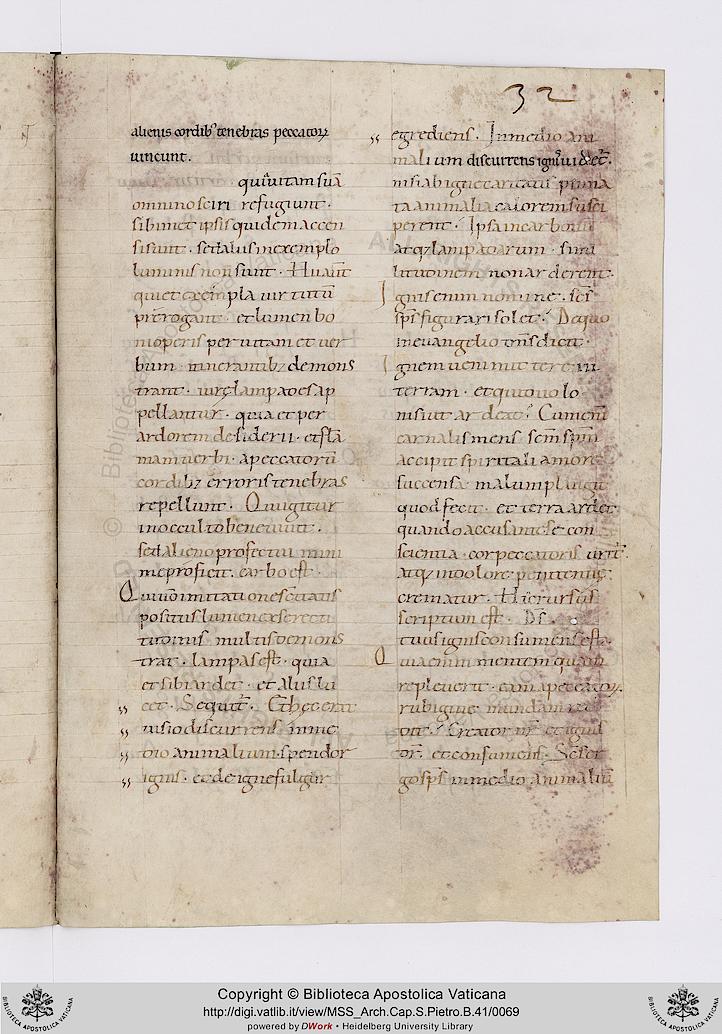 32
alienis cordib' tenebras peccatoꝝ
uincunt.
qui uitam suā
omnino sciri refugiunt.
sibimet ipsis quidem accen
si sunt. sed aliis in exemplo
luminis non sunt. Hi aūt
qui et exempla uirtutū
prerogant. et lumen bo
ni operis per uitam et uer
bum itinerantib; demons
trant. iure lampades ap
pellantur. quia et per
ardorem desiderii. et flā
mam uerbi. a peccatorū
cordib; erroris tenebras
repellunt. Qui igitur
in occulto bene uiuit.
sed alieno profectui mini
me proficit. carbo est.
Qui uō in imitatione sc̄itatis
positus lumen ex se recti
tudinis multis demons
trat. lampas est. quia
et sibi ardet. et aliis lu
cet. Sequit̄. Et hec erat
uisio discurrens in me
dio animalium. splendor
ignis. et de igne fulgur
egrediens. In medio ani
malium discurrens ignis
nisi ab igne caritatis prima
ta animalia calorem susci
perent. Ipsa in carbonū
atq; lampadarum. simi
litudinem non arderent.
Ignis enim nomine. sc̄s
sp̄s figurari solet. De quo
in euangelio dn̄s dicit.
Ignem ueni mittere in
terram. et quid uolo
nisi ut ardeat. Cum enī
carnalis mens sc̄m sp̄m
accipit spiritali amore
succensa. malum plangit
quod fecit. et terra ardet
quando accusante se con
scientia. cor peccatoris urit̄.
atq; in dolore penitentie
crematur. Hinc rursus
scriptum est. Ds̄
tuus ignis consumens est.
Quia enim mentem quam
repleuerit. eam a peccatoꝝ
rubigine mundam red
dit. Creator nr̄ et ignis
dr̄. et consumens. Sc̄s er
go sp̄s in medio animaliū
Copyright © Biblioteca Apostolica Vaticana
http://digi.vatlib.it/view/MSS_Arch.Cap.S.Pietro.B.41/0069
powered by DWork • Heidelberg University Library